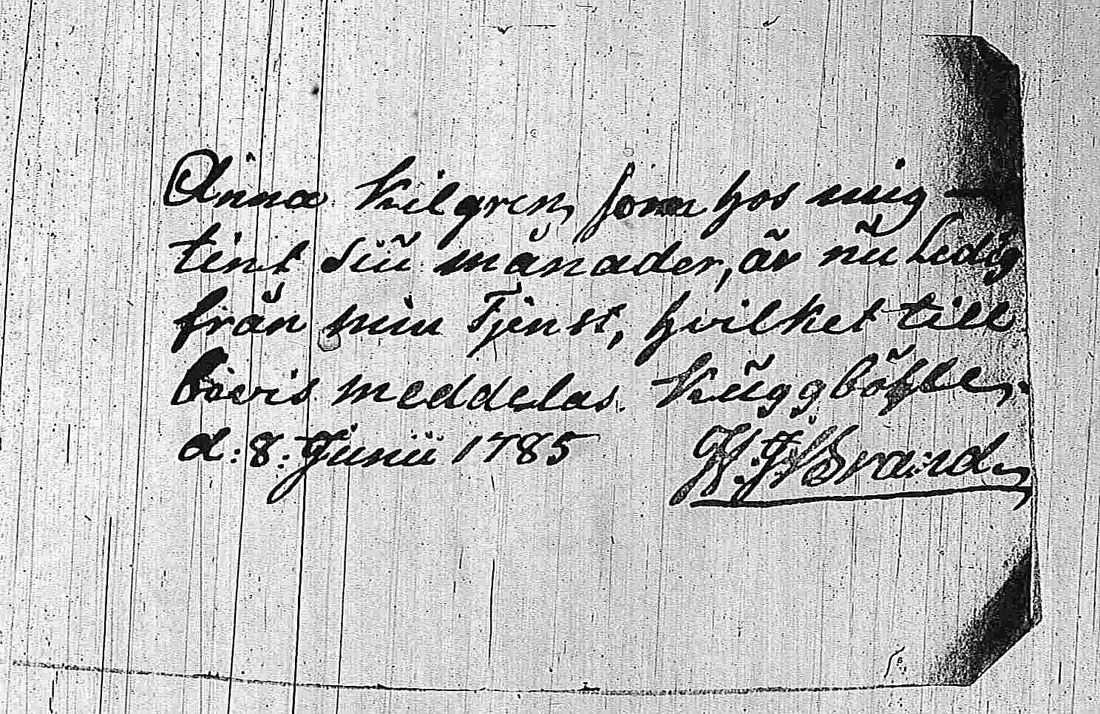 Anna Kilgren, som hos mig —
tint siu månader, är nu Ledig
från min Tjenst, hvilket till
bevis meddelas. Kuggböhle,
d: 8. Junii 1785 H. J. Brand